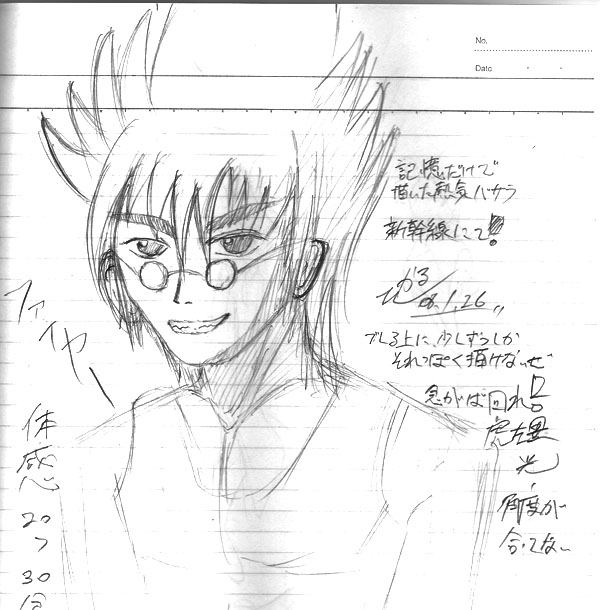 No.
Date
記憶だけで
描いた熱気バサラ
新幹線にて!
ひかる
08.1.26
ブレる上に、少しずつしか
それっぽく描けないぜ
急がば回れ!
光
角度が
合ってない
ファイヤー
体感
20
〜
30
分